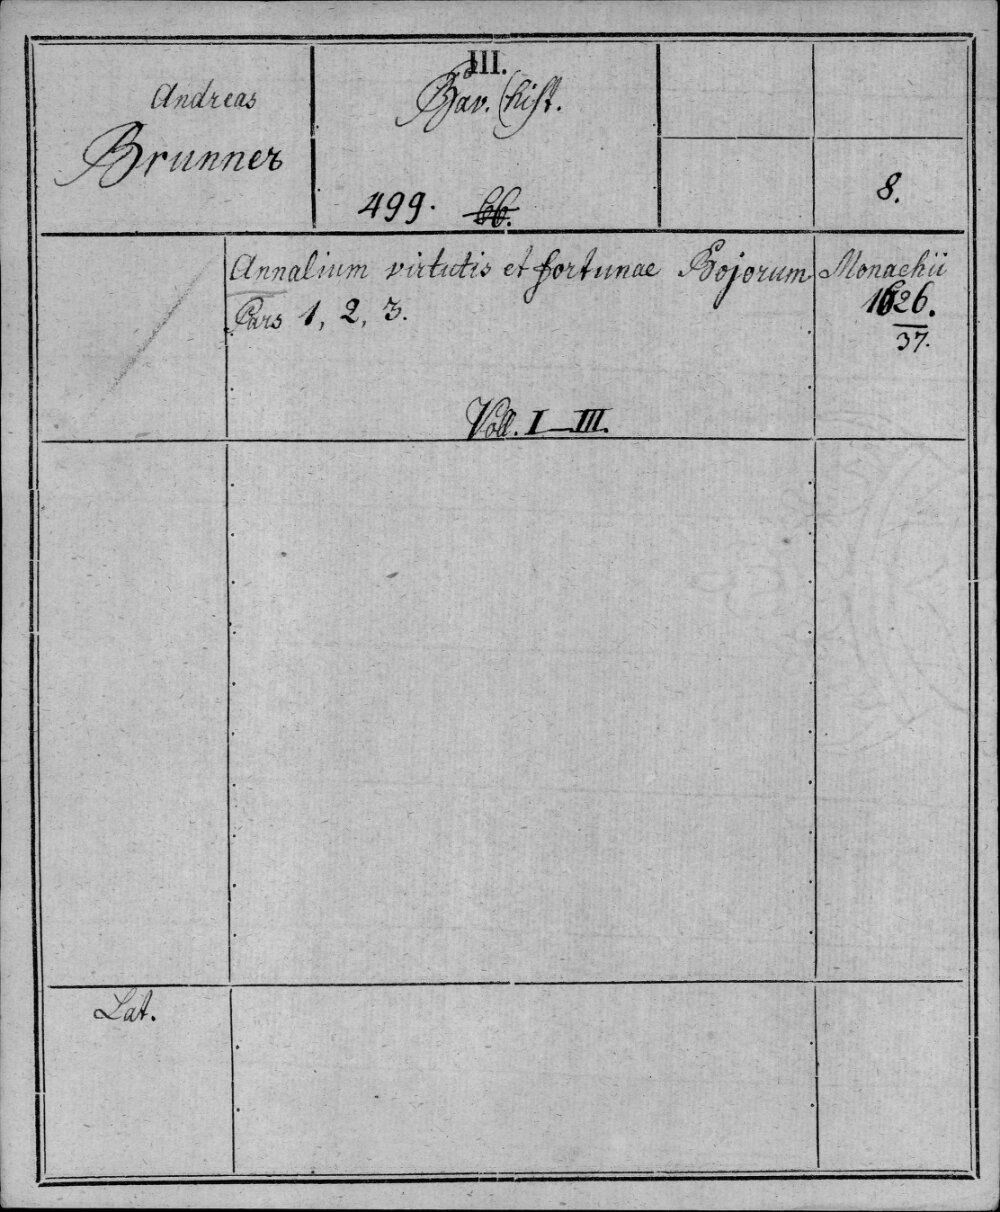 III.
Andreas
Brunner
Bav. hist.
499. bb.
8.
Annalium virtutis et fortunae Bojorum
Pars 1, 2, 3.
Voll. I—III.
Monachii
1626.
37.
Lat.